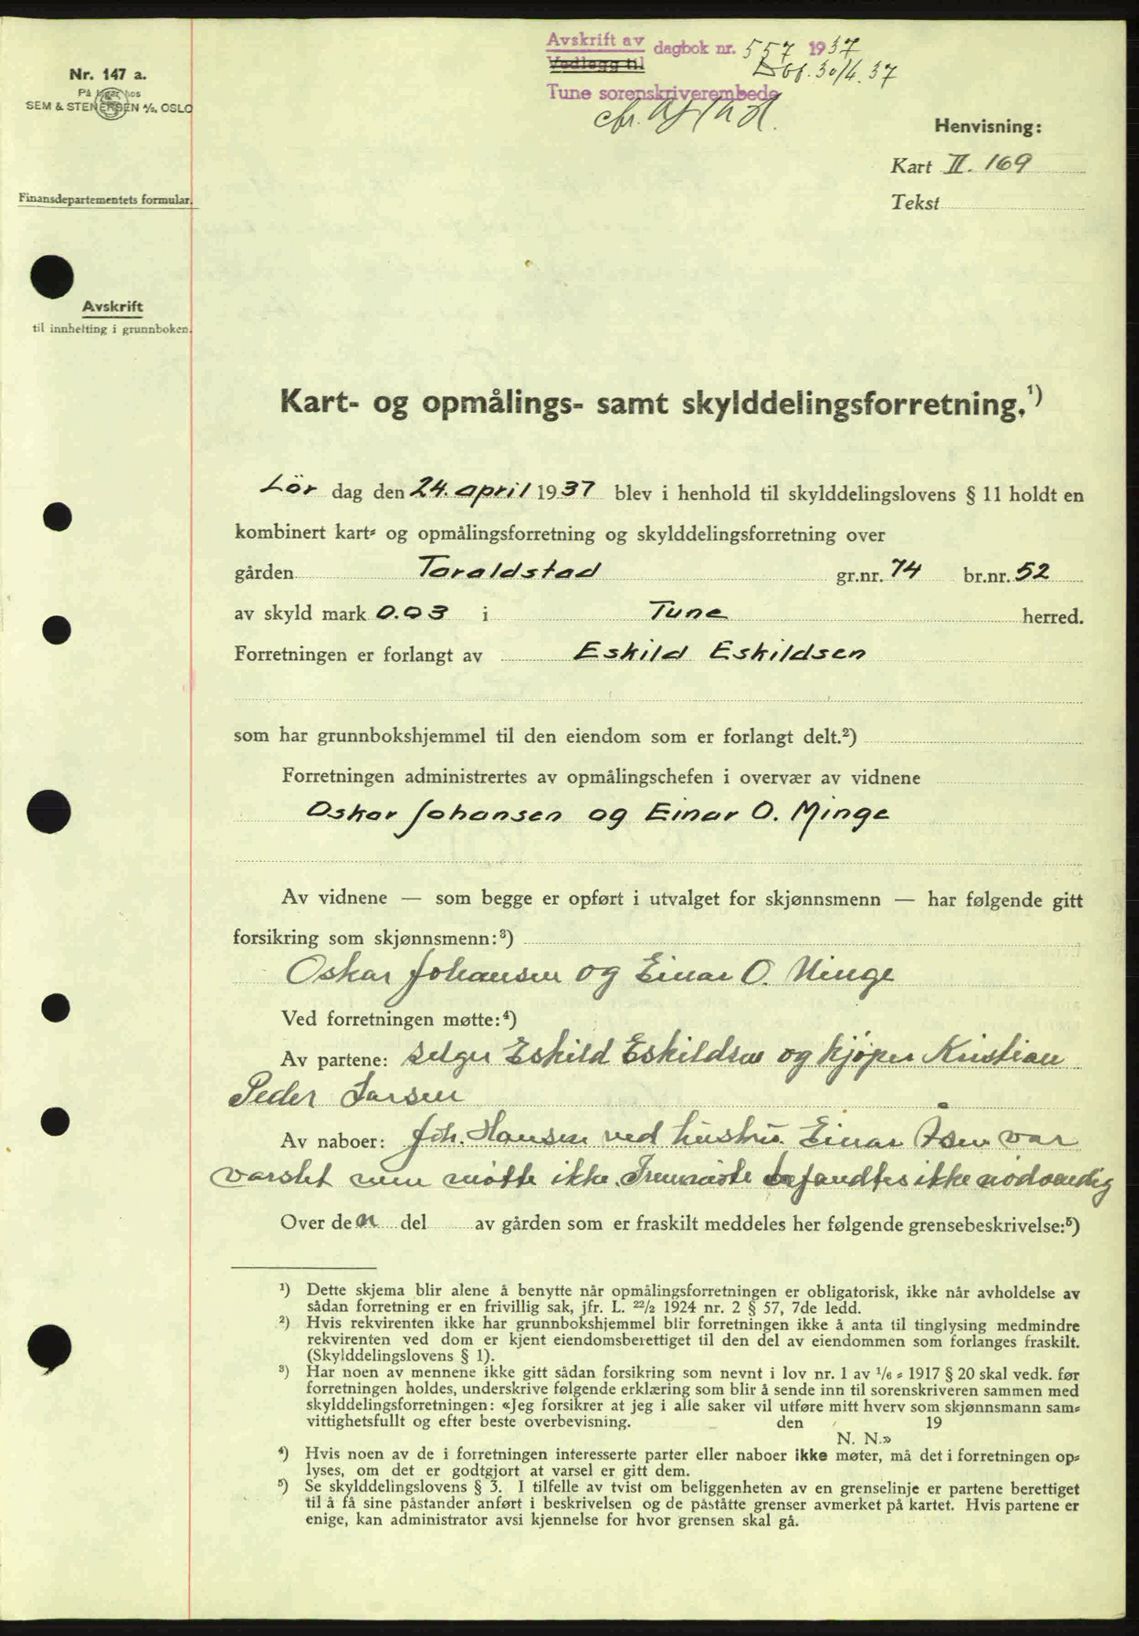 Avskrift av dagbok nr. 557 1937
Vedlegg til Dbf. 30/4.37
Tune sorenskriverembede
Nr. 147 a.
På lager hos
SEM & STENERSEN A/S. OSLO
Henvisning:
Kart II. 169
Tekst
Finansdepartementets formular.
Avskrift
til innhefting i grunnboken.
Kart- og opmålings- samt skylddelingsforretning.¹)
Lör dag den 24. april 1937 blev i henhold til skylddelingslovens § 11 holdt en
kombinert kart- og opmålingsforretning og skylddelingsforretning over
gården Taraldstad gr.nr. 74 br.nr. 52
av skyld mark 0.03 i Tune herred.
Forretningen er forlangt av Eskild Eskildsen
som har grunnbokshjemmel til den eiendom som er forlangt delt.²)
Forretningen administrertes av opmålingschefen i overvær av vidnene
Oskar Johansen og Einar O. Minge
Av vidnene — som begge er opført i utvalget for skjønnsmenn — har følgende gitt
forsikring som skjønnsmenn:³)
Oskar Johansen og Einar O. Minge
Ved forretningen møtte:⁴)
Av partene: selger Eskild Eskildsen og kjøper Kristian
Peder Larsen
Av naboer: Joh. Hansen ved hustru. Einar Åsen var
varslet men møtte ikke. Fremmøte befandtes ikke nødvendig
Over den del av gården som er fraskilt meddeles her følgende grensebeskrivelse:⁵)
¹) Dette skjema blir alene å benytte når opmålingsforretningen er obligatorisk, ikke når avholdelse av
sådan forretning er en frivillig sak, jfr. L. 22/2 1924 nr. 2 § 57, 7de ledd.
²) Hvis rekvirenten ikke har grunnbokshjemmel blir forretningen ikke å anta til tinglysing medmindre
rekvirenten ved dom er kjent eiendomsberettiget til den del av eiendommen som forlanges fraskilt.
(Skylddelingslovens § 1).
³) Har noen av mennene ikke gitt sådan forsikring som nevnt i lov nr. 1 av 1/6 - 1917 § 20 skal vedk. før
forretningen holdes, underskrive følgende erklæring som blir å sende inn til sorenskriveren sammen med
skylddelingsforretningen: «Jeg forsikrer at jeg i alle saker vil utføre mitt hverv som skjønnsmann sam-
vittighetsfullt og efter beste overbevisning. den 19
N. N.»
⁴) Hvis noen av de i forretningen interesserte parter eller naboer ikke møter, må det i forretningen op-
lyses, om det er godtgjort at varsel er gitt dem.
⁵) Se skylddelingslovens § 3. I tilfelle av tvist om beliggenheten av en grenselinje er partene berettiget
til å få sine påstander anført i beskrivelsen og de påståtte grenser avmerket på kartet. Hvis partene er
enige, kan administrator avsi kjennelse for hvor grensen skal gå.